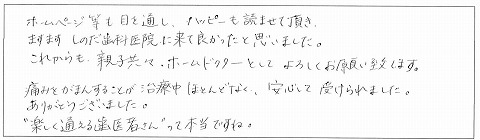 ホームページ等も目を通し、ハッピーも読ませて頂き、
ますます しのだ歯科医院に来て良かったと思いました。
これからも、親子共々、ホームドクターとして よろしくお願い致します。
痛みをがまんすることが 治療中 ほとんどなく、安心して 受けられました。
ありがとうございました。
"楽しく通える歯医者さん"って本当ですね。